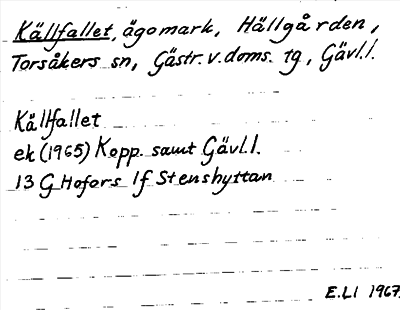 Källfallet, ägomark, Hällgården,
Torsåkers sn, Gästr. v. doms. tg, Gävl.l.
Källfallet
ek (1965) Kopp. samt Gävl.l.
13 G Hofors 1f Stenshyttan
E.LI 1967.